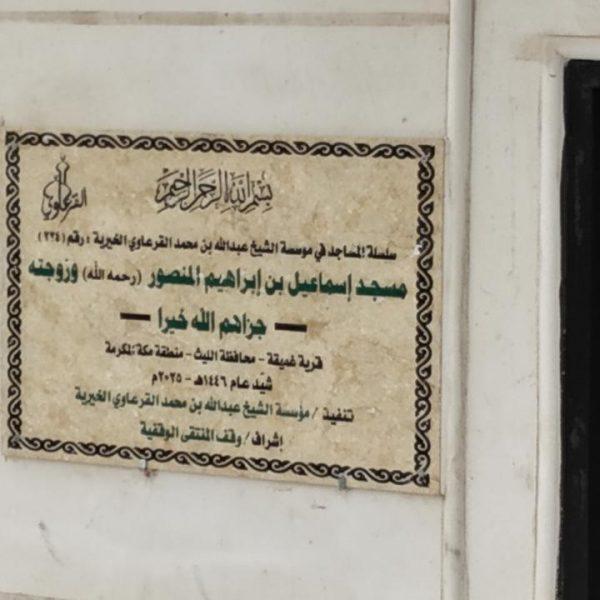 بسم الله الرحمن الرحيم
القرعاوي
سلسلة المساجد في موسسة الشيخ عبدالله بن محمد القرعاوي الخيرية ، رقم (٢٢٤)
مسجد إسماعيل بن إبراهيم المنصور (رحمه الله) وزوجته
جزاهم الله خيرا
قرية غميقة - محافظة الليث - منطقة مكة المكرمة
شيّد عام ١٤٤٦هـ - ٢٠٢٥م
تنفيذ / مؤسسة الشيخ عبدالله بن محمد القرعاوي الخيرية
إشراف / وقف المنتقى الوقفية